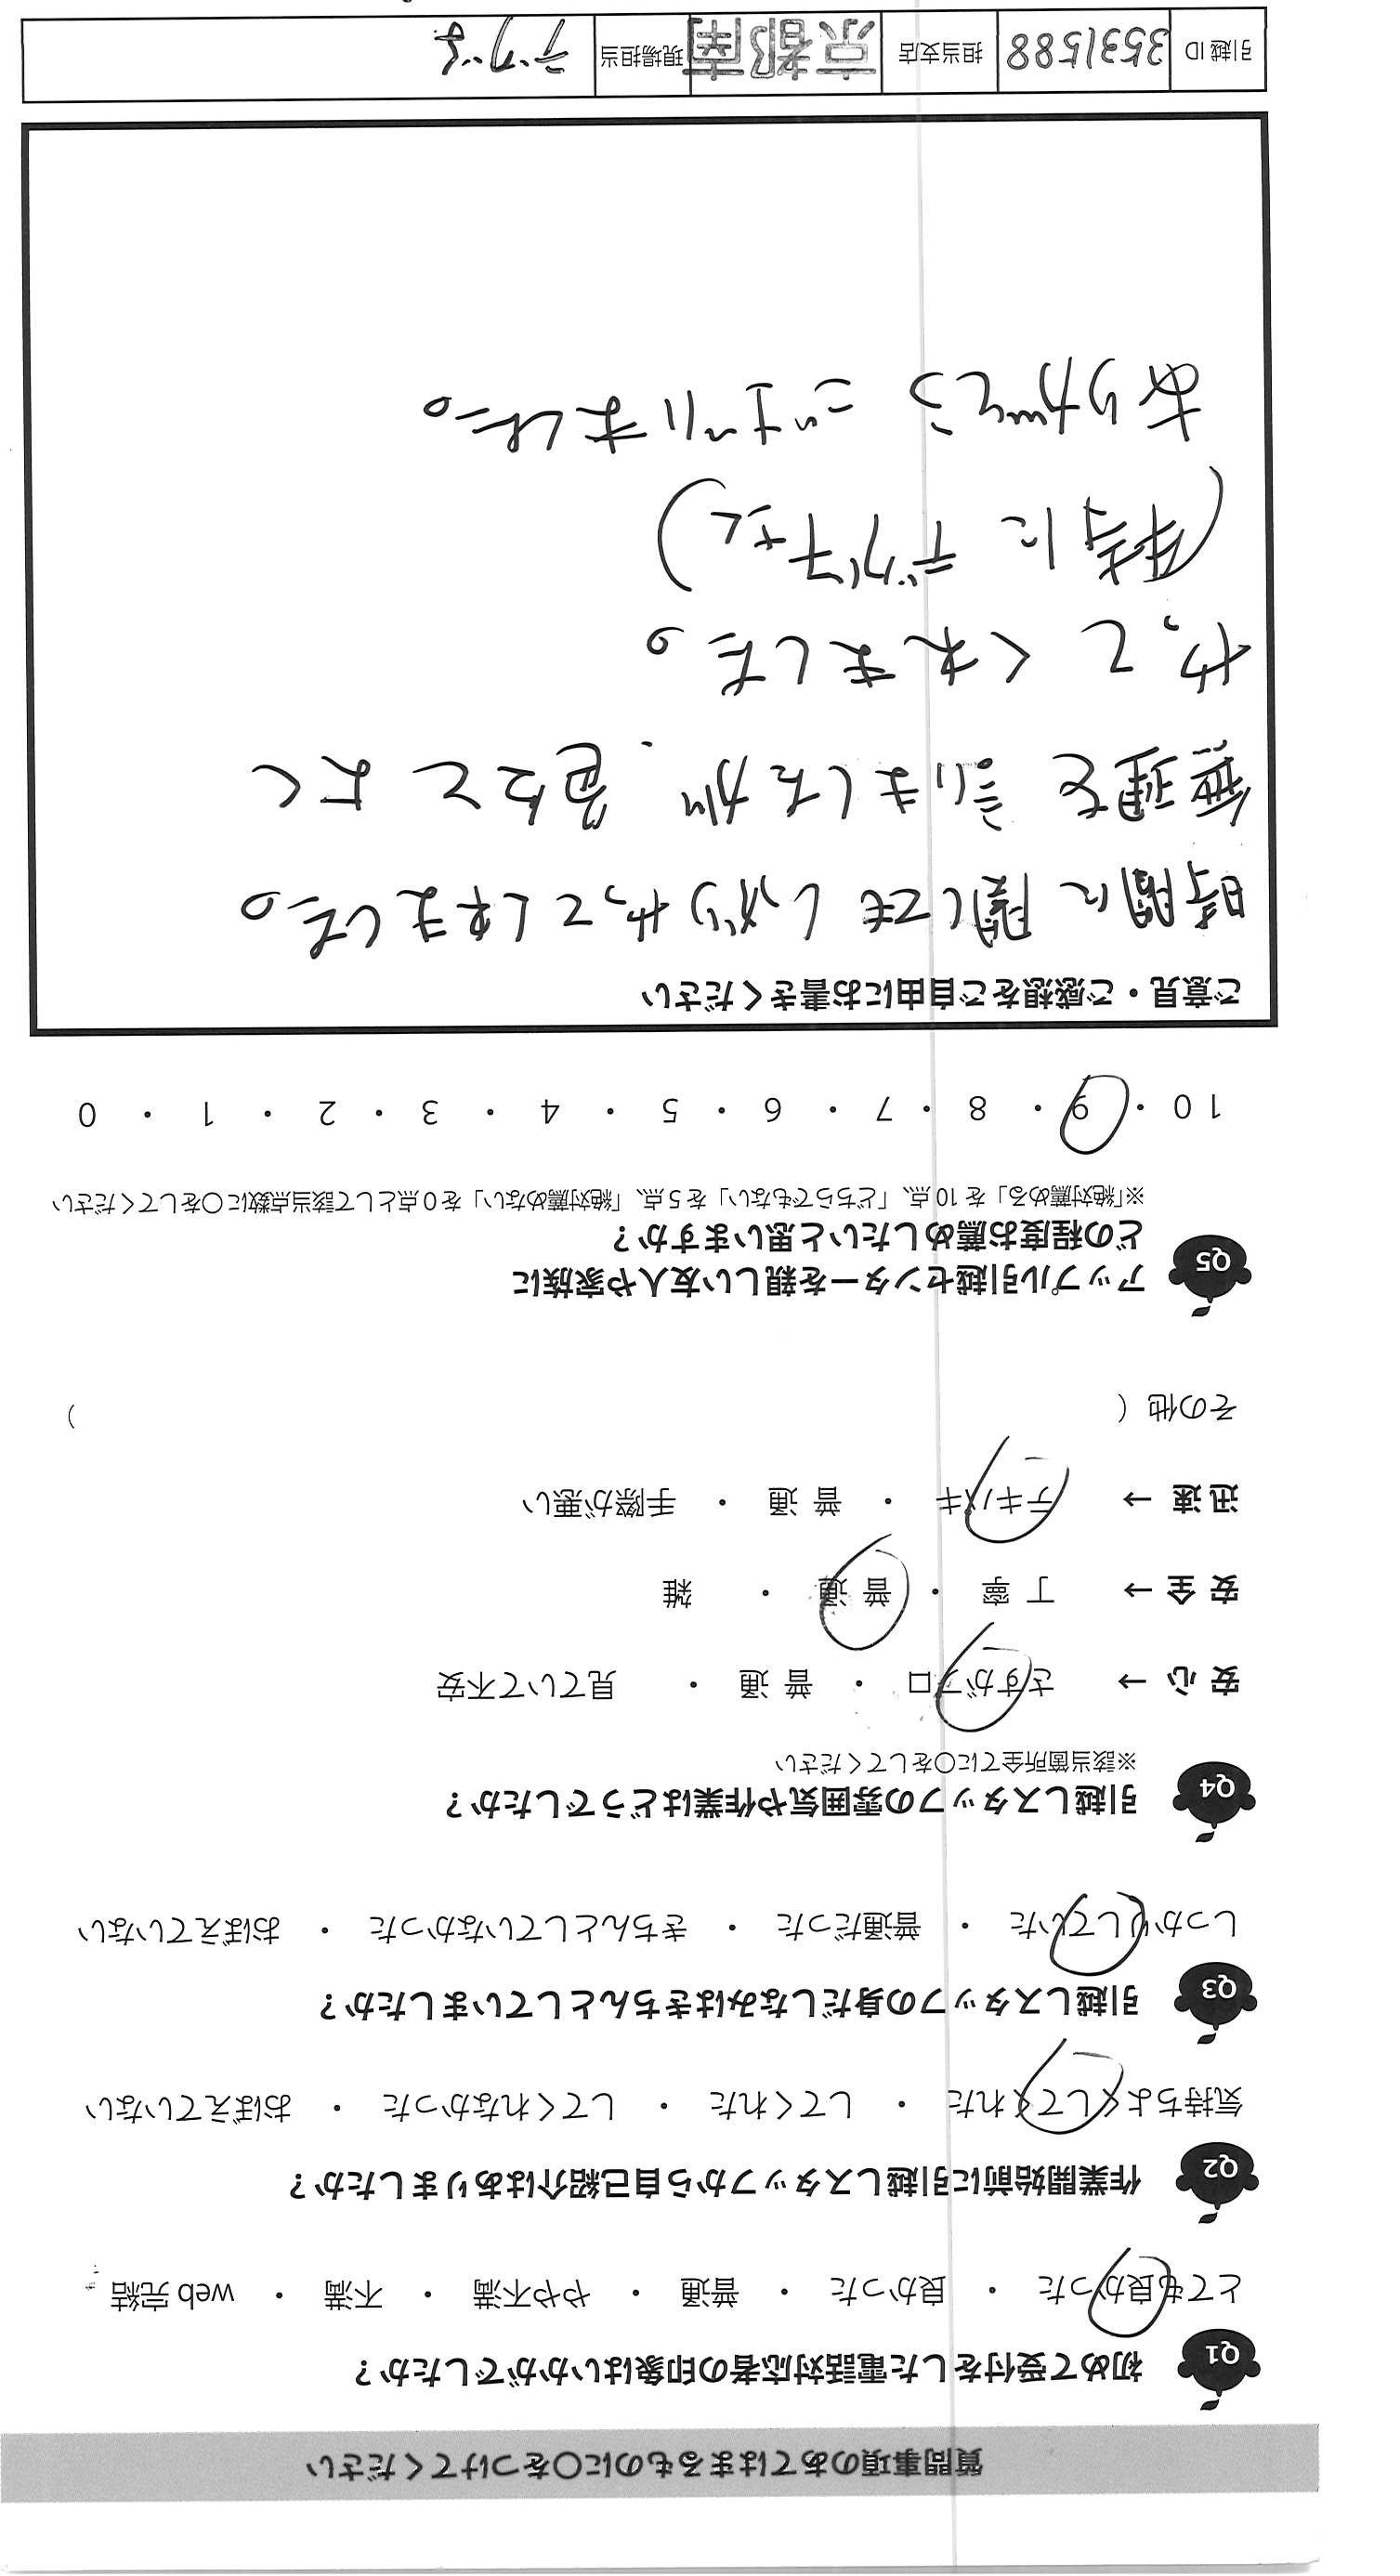 質問事項のあてはまるものに〇をつけてください
Q1 初めて受付をした電話対応者の印象はいかがでしたか？
とても良かった ・ 良かった ・ 普通 ・ やや不満 ・ 不満 ・ web 完結
Q2 作業開始前に引越しスタッフから自己紹介はありましたか？
気持ちよくしてくれた ・ してくれた ・ してくれなかった ・ おぼえていない
Q3 引越しスタッフの身だしなみはきちんとしていましたか？
しっかりしていた ・ 普通だった ・ きちんとしていなかった ・ おぼえていない
Q4 引越しスタッフの雰囲気や作業はどうでしたか？
※該当箇所全てに〇をしてください
安心 → さすがプロ ・ 普通 ・ 見ていて不安
安全 → 丁寧 ・ 普通 ・ 雑
迅速 → テキパキ ・ 普通 ・ 手際が悪い
その他（ ）
Q5 アップル引越センターを親しい友人や家族に
どの程度お薦めしたいと思いますか？
※「絶対薦める」を10点、「どちらでもない」を5点、「絶対薦めない」を0点として該当点数に〇をしてください
10 ・ 9 ・ 8 ・ 7 ・ 6 ・ 5 ・ 4 ・ 3 ・ 2 ・ 1 ・ 0
ご意見・ご感想をご自由にお書きください
時間に関してもしっかりやってくれました。
無理を言いましたが、急いでよく
やってくれました。
(特に デグチさん)
ありがとうございました。
引越ID 3531588 担当支店 京都南 現場担当